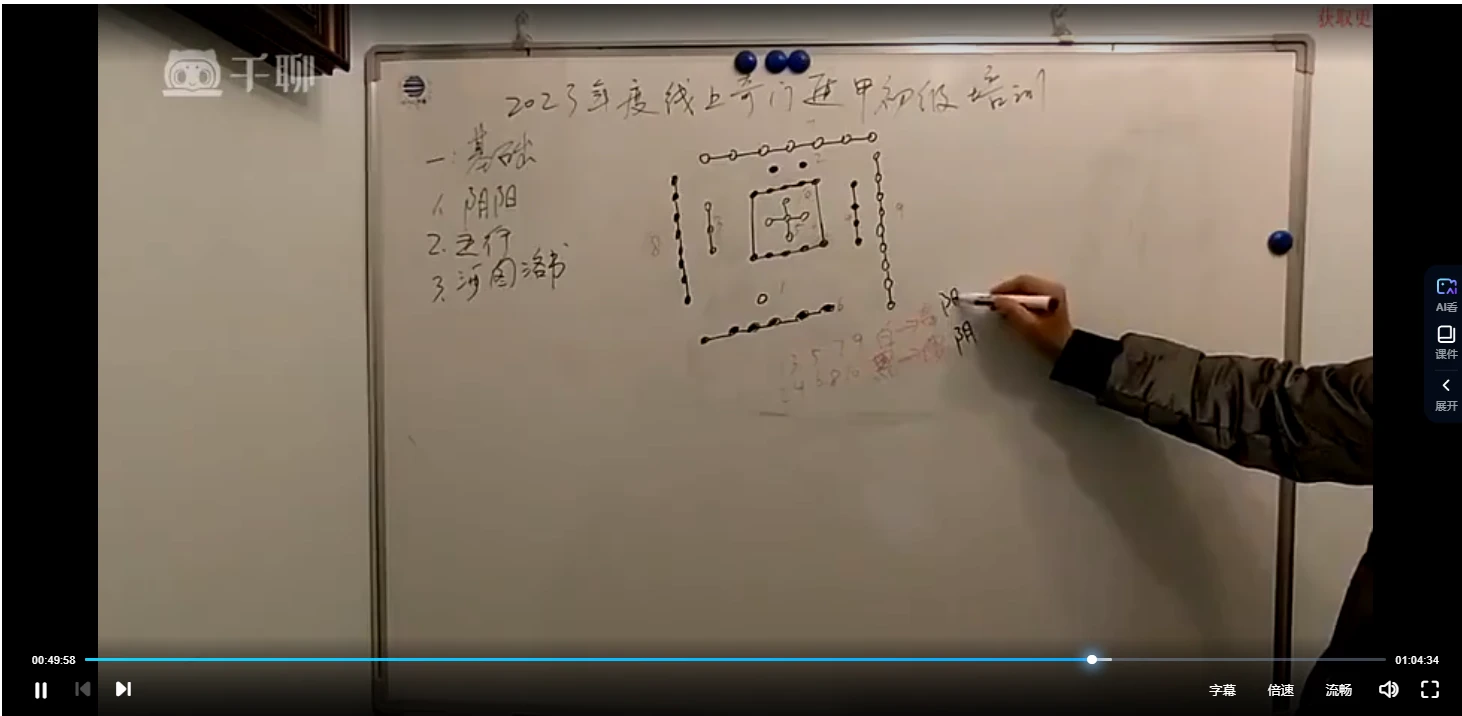 获取更
千聊
2023年度线上奇门遁甲初级培训
一：基础
1、阴阳
2、五行
3、河图洛书
2
8
9
1
6
1 3 5 7 9 白→
2 4 6 8 10 黑→
阳
阴
AI看
课件
展开
00:49:58
01:04:34
字幕
倍速
流畅